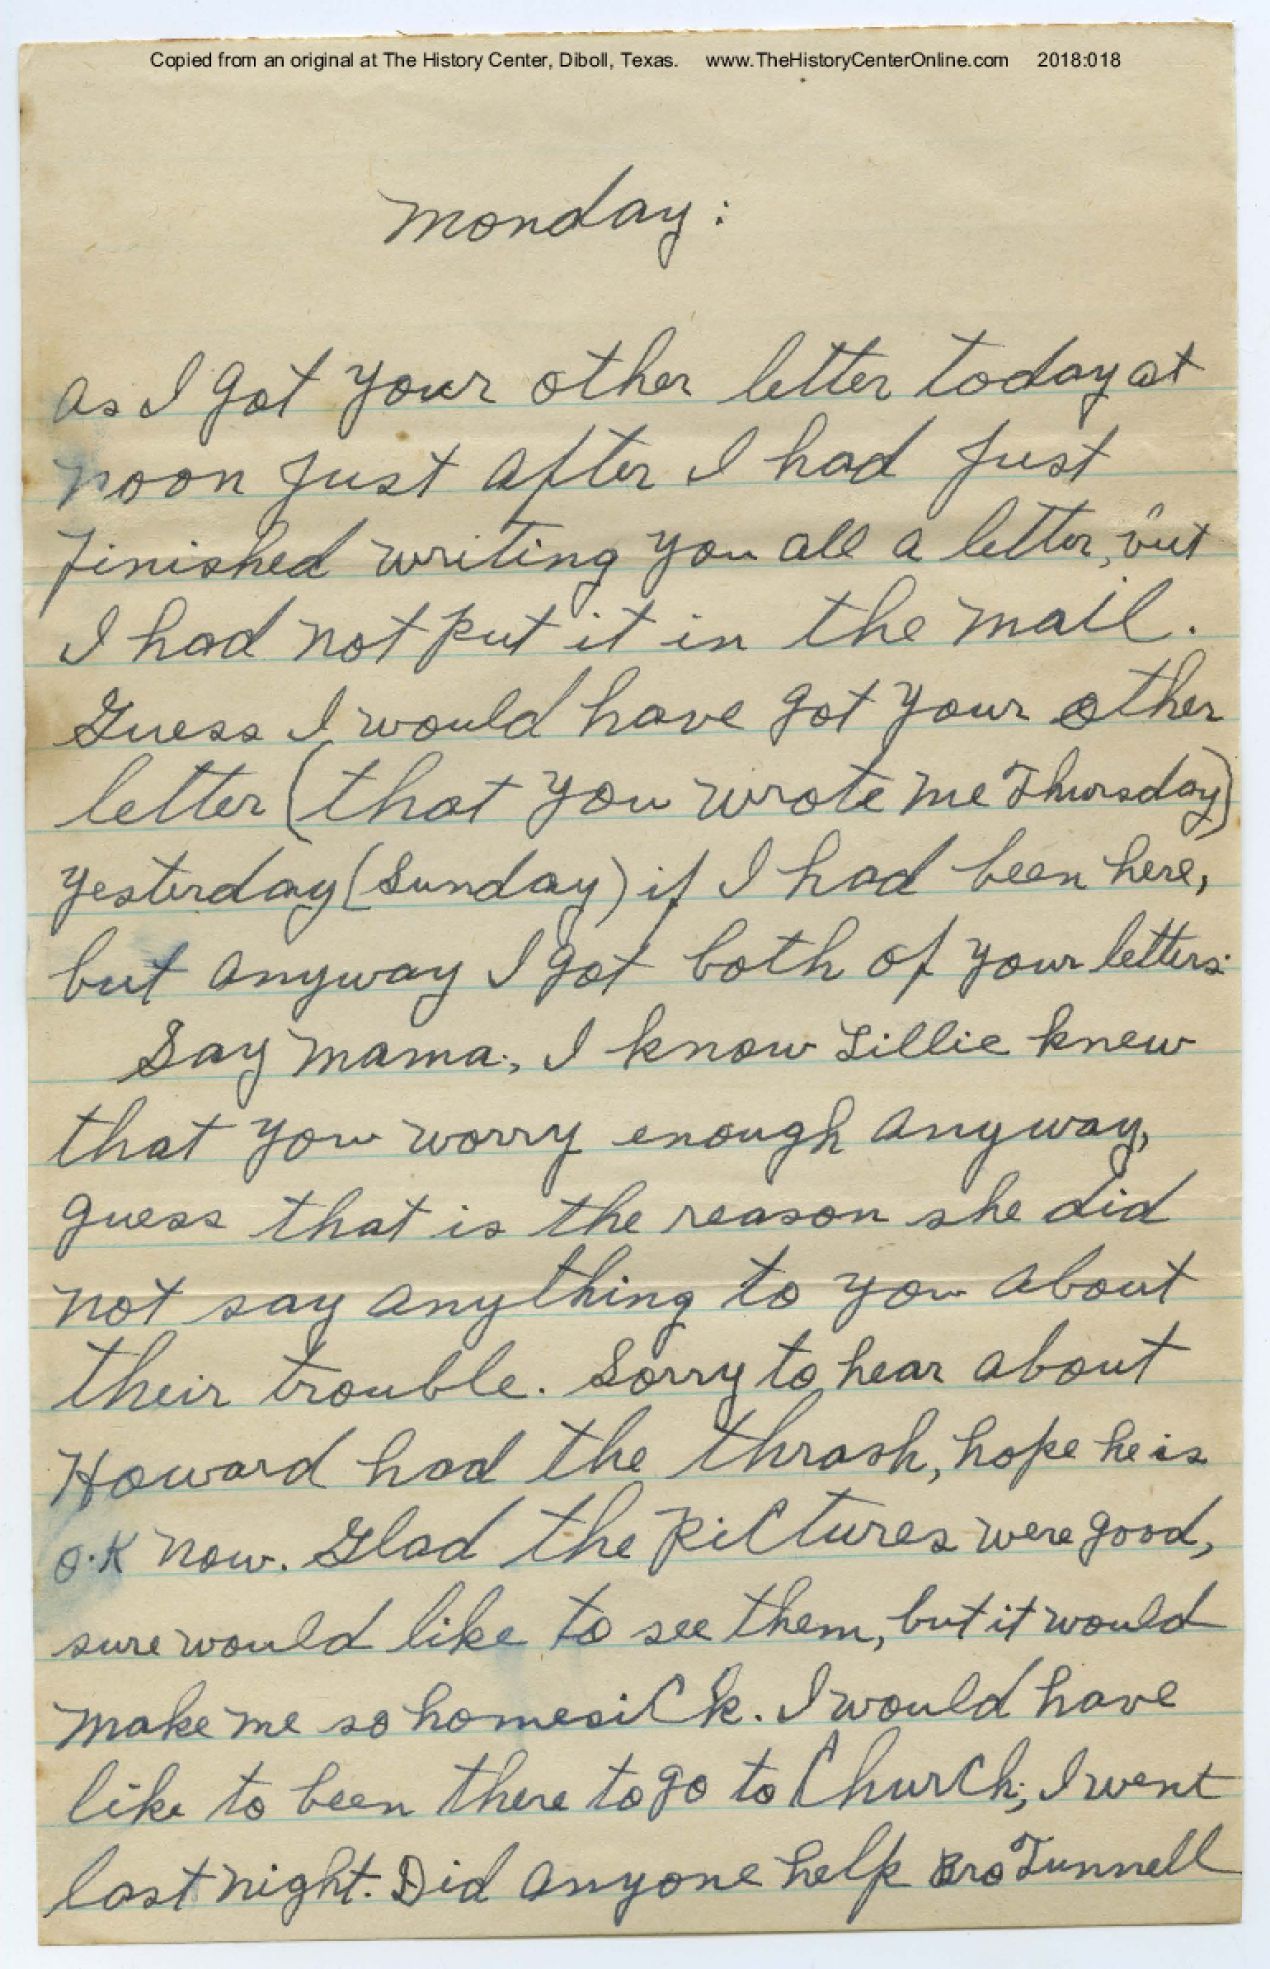 Copied from an original at The History Center, Diboll, Texas. www.TheHistoryCenterOnline.com 2018:018
Monday:
as I got your other letter today at
noon just after I had just
finished writing you all a letter, but
I had not put it in the mail.
Guess I would have got your other
letter (that you wrote me Thursday)
yesterday (Sunday) if I had been here,
but anyway I got both of your letters.
Say mama, I know Lillie knew
that you worry enough anyway,
guess that is the reason she did
not say anything to you about
their trouble. Sorry to hear about
Howard had the thrash, hope he is
O.K now. Glad the pictures were good,
sure would like to see them, but it would
make me so homesick. I would have
like to been there to go to Church, I went
last night. Did anyone help Bro Tunnell